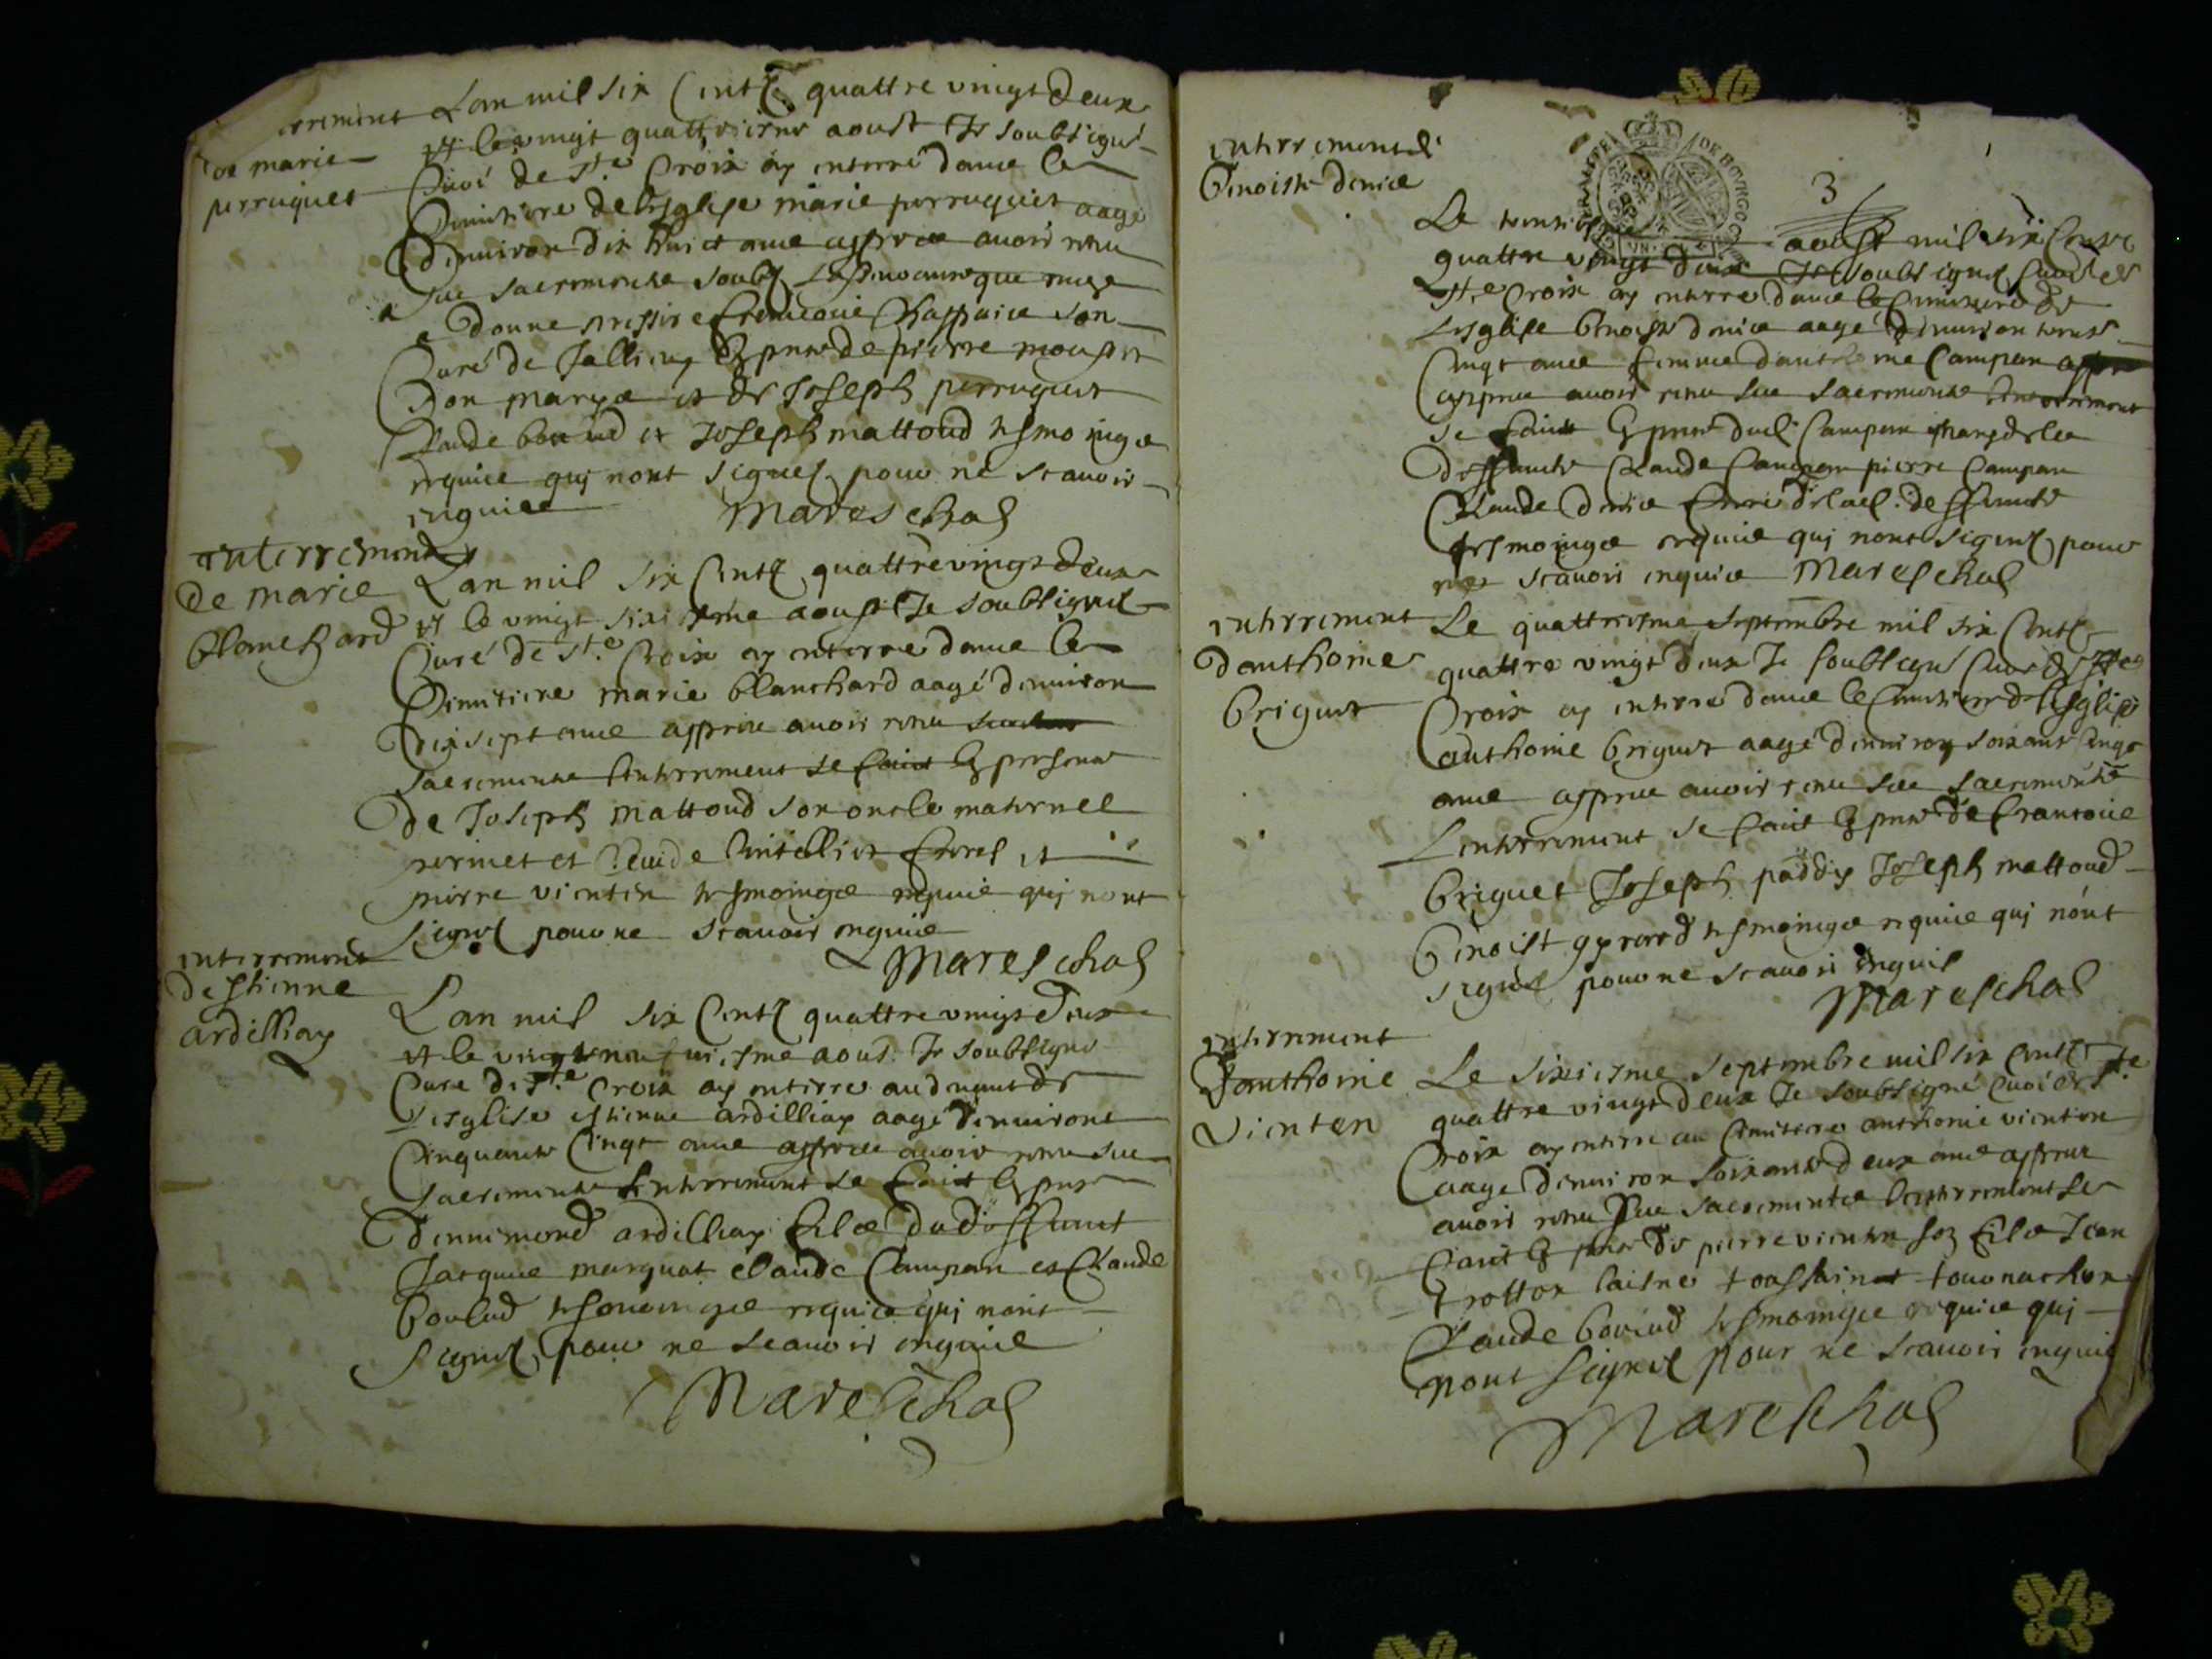 rrement
de marie
perruquet
Lan mil six Centz quattre vingt deux
et le vingt quattriesme aoust Je soubsigné
Curé de Ste Croix ay enterré dans le
Cimitiere de lesglise marie perruquet aagé
denviron dix huict ans apprez avoir receu
ses sacrements soubz
a donné messire son
Curé de de pierre
son marys et de Joseph perruquet
Claude et Joseph mattoud tesmoings
requis qui nont signez pour ne scavoir
enquis
Mareschal
enterrement
de marie
blanchard
Lan mil six Centz quattre vingt deux
et le vingt sixiesme aoust Je soubsigné
Curé de Ste Croix ay enterré dans le
Cimitiere marie blanchard aagé denviron
dix sept ans apprez avoir receu
sacrements lenterrement se faict
de Joseph mattoud son oncle maternel
et
pierre vienten tesmoings requis qui nont
signez pour ne scavoir enquis
Mareschal
enterrement
destienne
ardilliay
Lan mil six Centz quattre vingt deux
et le vingt neufviesme aoust Je soubsigné
Curé de Ste Croix ay enterré au devant de
lesglise estienne ardilliay aagé denviront
Cinquante Cinqt ans apprez avoir receu ses
sacrements lenterrement se faict
dennemond ardilliay filz du deffunct
Jacques marquat claude Campan et Claude
tesmoings requis qui nont
signez pour ne scavoir enquis
Mareschal
enterrement de
Benoiste denis
3
GENERALITE DE BOURGO
Le aoust mil six Centz
quattre vingt deux Je soubsigné Curé de
Ste Croix ay enterré dans le Cimitiere de
lesglise benoiste denis aagé denviron trente
Cinqt ans femme danthoine Campan
apprez avoir receu ses sacrements lenterrement
se faict Campan marys de la
deffuncte Claude Campan pierre Campan
Claude denis frere de lad. deffuncte
tesmoings requis qui nont signez pour
ne scavoir enquis Mareschal
enterrement
danthoine
briguet
Le quattriesme septembre mil six Centz
quattre vingt deux Je soubsigné Curé de Ste
Croix ay enterré dans le Cimitiere de lesglise
anthoine briguet aagé denviron soixante Cinqt
ans apprez avoir receu ses sacrements
Lenterrement se faict de francois
briguet Joseph paddy Joseph mattoud
benoist gyraud tesmoings requis qui nont
signez pour ne scavoir enquis
Mareschal
enterrement
danthoine
vienten
Le sixiesme septembre mil six Centz
quattre vingt deux Je soubsigné Curé de Ste
Croix ay enterré au Cimitiere anthoine vienten
aagé denviron soixante deux ans apprez
avoir receu ses sacrements lenterrement se
faict de pierre vienten son filz Jean
trotton laisne toussainct tournachon
Claude tesmoings requis qui
nont signez pour ne scavoir enquis
Mareschal